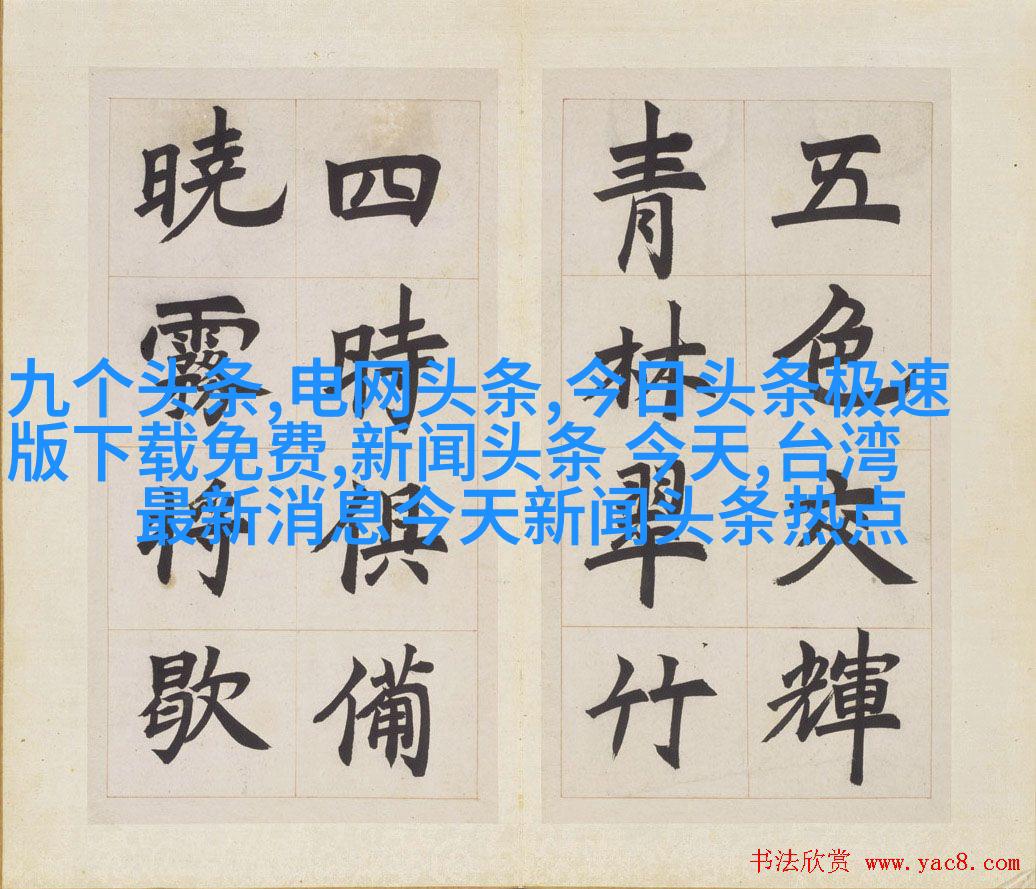 五色交輝
青林翠竹
四時俱備
暁霧将歇
九个头条,电网头条,今日头条极速
版下载免费,新闻头条 今天,台湾
最新消息今天新闻头条热点
书法欣赏 www.yac8.com